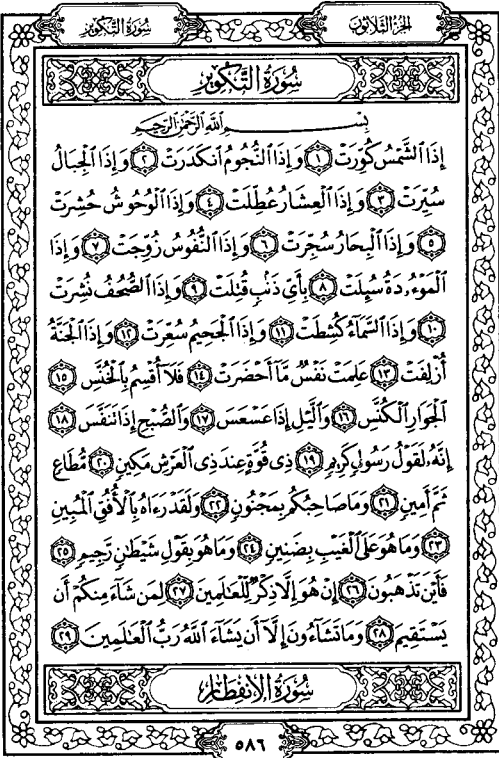 الجُزْءُ الثَّلَاثُونَ
سُورَةُ التَّكْوِيرِ
سُورَةُ التَّكْوِيرِ
بِسْمِ ٱللَّهِ ٱلرَّحْمَٰنِ ٱلرَّحِيمِ
إِذَا ٱلشَّمْسُ كُوِّرَتْ ١ وَإِذَا ٱلنُّجُومُ ٱنكَدَرَتْ ٢ وَإِذَا ٱلْجِبَالُ
سُيِّرَتْ ٣ وَإِذَا ٱلْعِشَارُ عُطِّلَتْ ٤ وَإِذَا ٱلْوُحُوشُ حُشِرَتْ
٥ وَإِذَا ٱلْبِحَارُ سُجِّرَتْ ٦ وَإِذَا ٱلنُّفُوسُ زُوِّجَتْ ٧ وَإِذَا
ٱلْمَوْءُۥدَةُ سُئِلَتْ ٨ بِأَيِّ ذَنۢبٍ قُتِلَتْ ٩ وَإِذَا ٱلصُّحُفُ نُشِرَتْ
١٠ وَإِذَا ٱلسَّمَآءُ كُشِطَتْ ١١ وَإِذَا ٱلْجَحِيمُ سُعِّرَتْ ١٢ وَإِذَا ٱلْجَنَّةُ
أُزْلِفَتْ ١٣ عَلِمَتْ نَفْسٌ مَّآ أَحْضَرَتْ ١٤ فَلَآ أُقْسِمُ بِٱلْخُنَّسِ ١٥
ٱلْجَوَارِ ٱلْكُنَّسِ ١٦ وَٱلَّيْلِ إِذَا عَسْعَسَ ١٧ وَٱلصُّبْحِ إِذَا تَنَفَّسَ ١٨
إِنَّهُۥ لَقَوْلُ رَسُولٍ كَرِيمٍ ١٩ ذِى قُوَّةٍ عِندَ ذِى ٱلْعَرْشِ مَكِينٍ ٢٠ مُّطَاعٍ
ثَمَّ أَمِينٍ ٢١ وَمَا صَاحِبُكُم بِمَجْنُونٍ ٢٢ وَلَقَدْ رَءَاهُ بِٱلْأُفُقِ ٱلْمُبِينِ
٢٣ وَمَا هُوَ عَلَى ٱلْغَيْبِ بِضَنِينٍ ٢٤ وَمَا هُوَ بِقَوْلِ شَيْطَٰنٍ رَّجِيمٍ ٢٥
فَأَيْنَ تَذْهَبُونَ ٢٦ إِنْ هُوَ إِلَّا ذِكْرٌ لِّلْعَٰلَمِينَ ٢٧ لِمَن شَآءَ مِنكُمْ أَن
يَسْتَقِيمَ ٢٨ وَمَا تَشَآءُونَ إِلَّآ أَن يَشَآءَ ٱللَّهُ رَبُّ ٱلْعَٰلَمِينَ ٢٩
سُورَةُ الِانفِطَارِ
٥٨٦